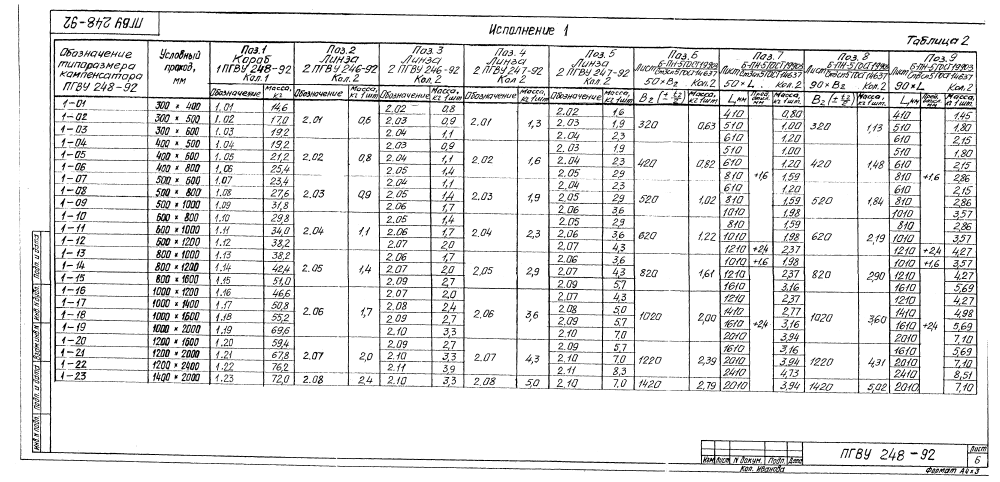 ПГВУ 248-92
Исполнение 1
Таблица 2
Обозначение типоразмера компенсатора ПГВУ 248-92 | Условный проход, мм | Поз.1 Короб 1 ПГВУ 248-92 Кол. 1 | Поз. 2 Линза 2 ПГВУ 246-92 Кол. 2 | Поз. 3 Линза 2 ПГВУ 246-92 Кол. 2 | Поз. 4 Линза 2 ПГВУ 247-92 Кол 2 | Поз. 5 Линза 2 ПГВУ 247-92 Кол. 2 | Поз. 6 Лист Б-ПН-5 ГОСТ 19903 Ст3сп5 ГОСТ 14637 50×B₂ Кол. 2 | Поз. 7 Лист Б-ПН-5 ГОСТ 19903 Ст3сп5 ГОСТ 14637 50×L Кол. 2 | Поз. 8 Лист Б-ПН-5 ГОСТ 19903 Ст3сп5 ГОСТ 14637 90×B₂ Кол. 2 | Поз. 9 Лист Б-ПН-5 ГОСТ 19903 Ст3сп5 ГОСТ 14637 90×L Кол. 2
Обозначение | Масса, кг | Обозначение | Масса, кг 1 шт. | Обозначение | Масса, кг 1 шт. | Обозначение | Масса, кг 1 шт. | Обозначение | Масса, кг 1 шт. | B₂ | Масса кг 1 шт. | L, мм | Масса кг 1 шт. | B₂ | Масса кг 1 шт. | L, мм | Масса кг 1 шт.
1-01 | 300 × 400 | 1.01 | 14,6 | 2.01 | 0,6 | 2.02 | 0,8 | 2.01 | 1,3 | 2.02 | 1,6 | 320 | 0,63 | 410 | +1,6 | 0,80 | 320 | 1,13 | 410 | +1,6 | 1,45
1-02 | 300 × 500 | 1.02 | 17,0 | 2.03 | 0,9 | 2.03 | 1,9 | 510 | 1,00 | 510 | 1,80
1-03 | 300 × 600 | 1.03 | 19,2 | 2.04 | 1,1 | 2.04 | 2,3 | 610 | 1,20 | 610 | 2,15
1-04 | 400 × 500 | 1.04 | 19,2 | 2.02 | 0,8 | 2.03 | 0,9 | 2.02 | 1,6 | 2.03 | 1,9 | 420 | 0,82 | 510 | 1,00 | 420 | 1,48 | 510 | 1,80
1-05 | 400 × 600 | 1.05 | 21,2 | 2.04 | 1,1 | 2.04 | 2,3 | 610 | 1,20 | 610 | 2,15
1-06 | 400 × 800 | 1.06 | 25,4 | 2.05 | 1,4 | 2.05 | 2,9 | 810 | 1,59 | 810 | 2,86
1-07 | 500 × 600 | 1.07 | 23,4 | 2.03 | 0,9 | 2.04 | 1,1 | 2.03 | 1,9 | 2.04 | 2,3 | 520 | 1,02 | 610 | 1,20 | 520 | 1,84 | 610 | 2,15
1-08 | 500 × 800 | 1.08 | 27,6 | 2.05 | 1,4 | 2.05 | 2,9 | 810 | 1,59 | 810 | 2,86
1-09 | 500 × 1000 | 1.09 | 31,8 | 2.06 | 1,7 | 2.06 | 3,6 | 1010 | 1,98 | 1010 | 3,57
1-10 | 600 × 800 | 1.10 | 29,8 | 2.04 | 1,1 | 2.05 | 1,4 | 2.04 | 2,3 | 2.05 | 2,9 | 620 | 1,22 | 810 | 1,59 | 620 | 2,19 | 810 | 2,86
1-11 | 600 × 1000 | 1.11 | 34,0 | 2.06 | 1,7 | 2.06 | 3,6 | 1010 | 1,98 | 1010 | 3,57
1-12 | 600 × 1200 | 1.12 | 38,2 | 2.07 | 2,0 | 2.07 | 4,3 | 1210 | +2,4 | 2,37 | 1210 | +2,4 | 4,27
1-13 | 800 × 1000 | 1.13 | 38,2 | 2.05 | 1,4 | 2.06 | 1,7 | 2.05 | 2,9 | 2.06 | 3,6 | 820 | 1,61 | 1010 | +1,6 | 1,98 | 820 | 2,90 | 1010 | +1,6 | 3,57
1-14 | 800 × 1200 | 1.14 | 42,4 | 2.07 | 2,0 | 2.07 | 4,3 | 1210 | +2,4 | 2,37 | 1210 | +2,4 | 4,27
1-15 | 800 × 1600 | 1.15 | 51,0 | 2.09 | 2,7 | 2.09 | 5,7 | 1610 | 3,16 | 1610 | 5,69
1-16 | 1000 × 1200 | 1.16 | 46,6 | 2.06 | 1,7 | 2.07 | 2,0 | 2.06 | 3,6 | 2.07 | 4,3 | 1020 | 2,00 | 1210 | 2,37 | 1020 | 3,60 | 1210 | 4,27
1-17 | 1000 × 1400 | 1.17 | 50,8 | 2.08 | 2,4 | 2.08 | 5,0 | 1410 | 2,77 | 1410 | 4,98
1-18 | 1000 × 1600 | 1.18 | 55,2 | 2.09 | 2,7 | 2.09 | 5,7 | 1610 | 3,16 | 1610 | 5,69
1-19 | 1000 × 2000 | 1.19 | 69,6 | 2.10 | 3,3 | 2.10 | 7,0 | 2010 | 3,94 | 2010 | 7,10
1-20 | 1200 × 1600 | 1.20 | 59,4 | 2.07 | 2,0 | 2.09 | 2,7 | 2.07 | 4,3 | 2.09 | 5,7 | 1220 | 2,39 | 1610 | 3,16 | 1220 | 4,31 | 1610 | 5,69
1-21 | 1200 × 2000 | 1.21 | 67,8 | 2.10 | 3,3 | 2.10 | 7,0 | 2010 | 3,94 | 2010 | 7,10
1-22 | 1200 × 2400 | 1.22 | 76,2 | 2.11 | 3,9 | 2.11 | 8,3 | 2410 | 4,73 | 2410 | 8,51
1-23 | 1400 × 2000 | 1.23 | 72,0 | 2.08 | 2,4 | 2.10 | 3,3 | 2.08 | 5,0 | 2.10 | 7,0 | 1420 | 2,79 | 2010 | 3,94 | 1420 | 5,02 | 2010 | 7,10
Изм Лист N докум. Подп. Дата
ПГВУ 248-92
Лист
6
Кол. Иванова
Формат А4×3